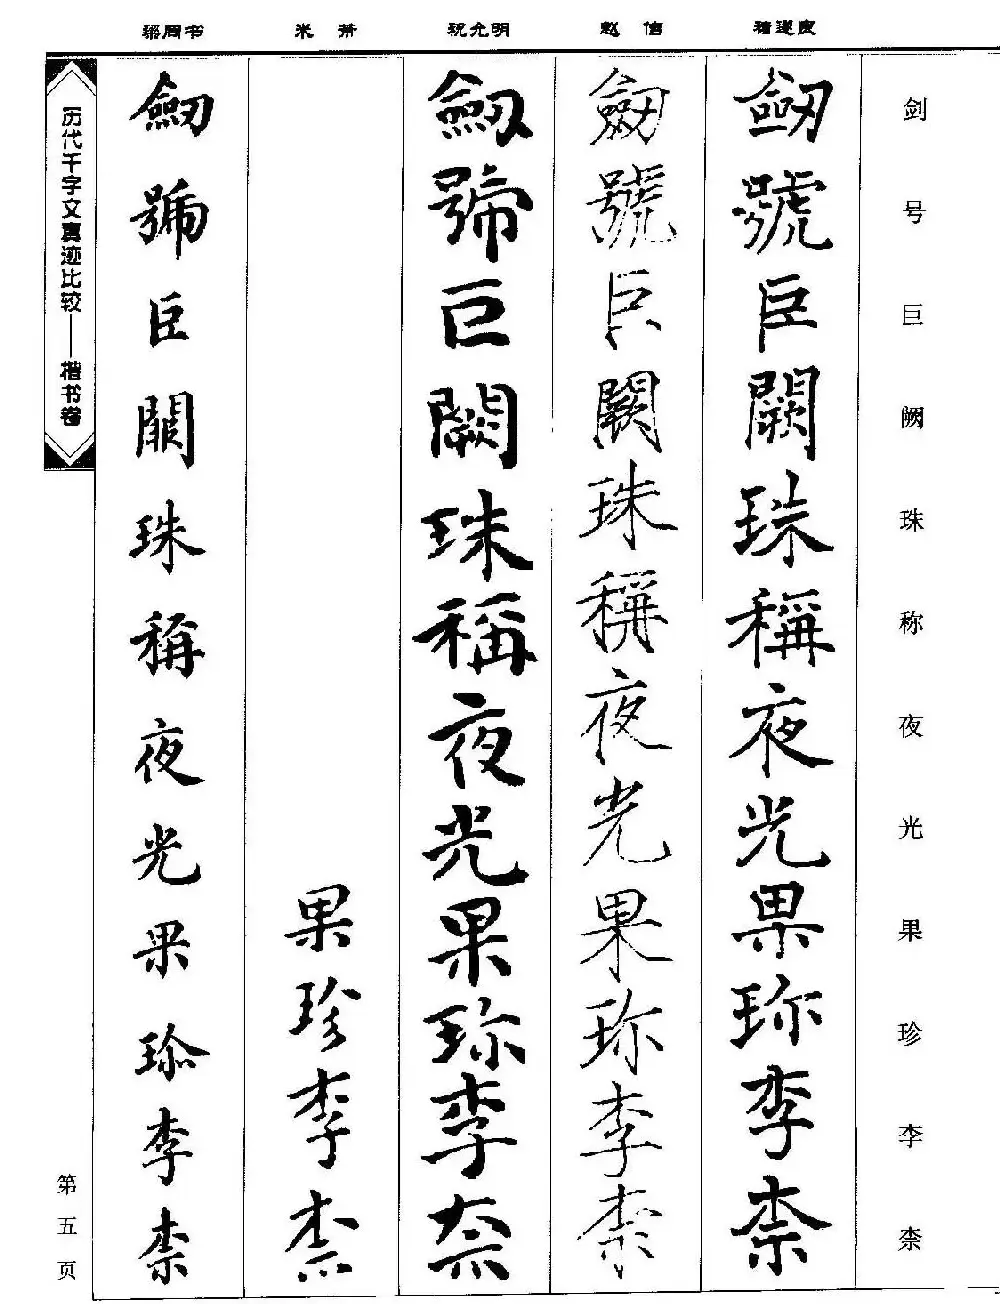 褚遂良
赵 佶
祝允明
米 芾
梁同书
剑号巨阙珠称夜光果珍李柰
劒號巨闕珠稱夜光果珎李柰
劒號巨闕珠稱夜光果珎李柰
劒號巨闕珠稱夜光果珎李柰
果珍李柰
劒號巨闕珠稱夜光果珎李柰
历代千字文真迹比较——楷书卷
第五页